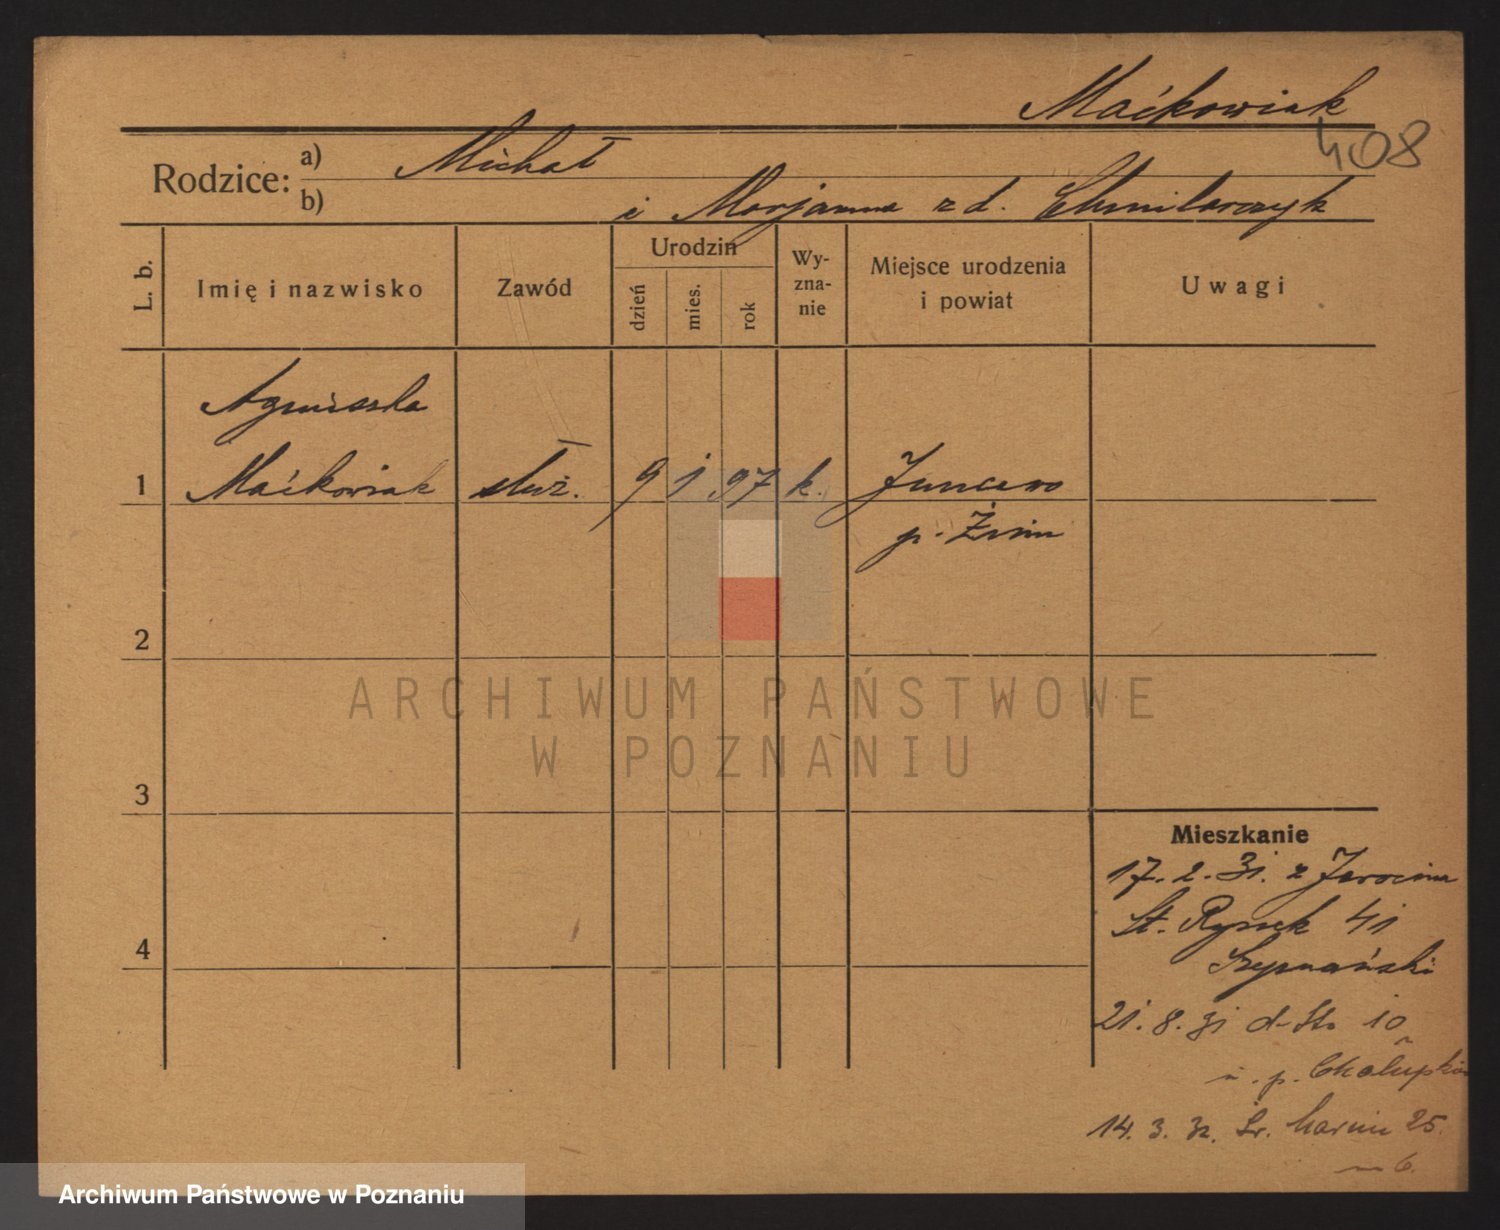 Maćkowiak
408
Rodzice: a) Michał
b) i Marjanna z d. Chmilarczyk
L. b.
Imię i nazwisko
Zawód
Urodzin
dzień
mies.
rok
Wy-
zna-
nie
Miejsce urodzenia
i powiat
Uwagi
Agnieszka
1 Maćkowiak służ. 9 1 97 k. Juncewo
p. Żnin
2
ARCHIWUM PAŃSTWOWE
W POZNANIU
3
Mieszkanie
17. 2. 31. z Jarocina
St. Rynek 41
4
Szymański
21. 8. 31 10
u. p.
14. 3. 32. Św. Marcin 25.
m 6.
Archiwum Państwowe w Poznaniu